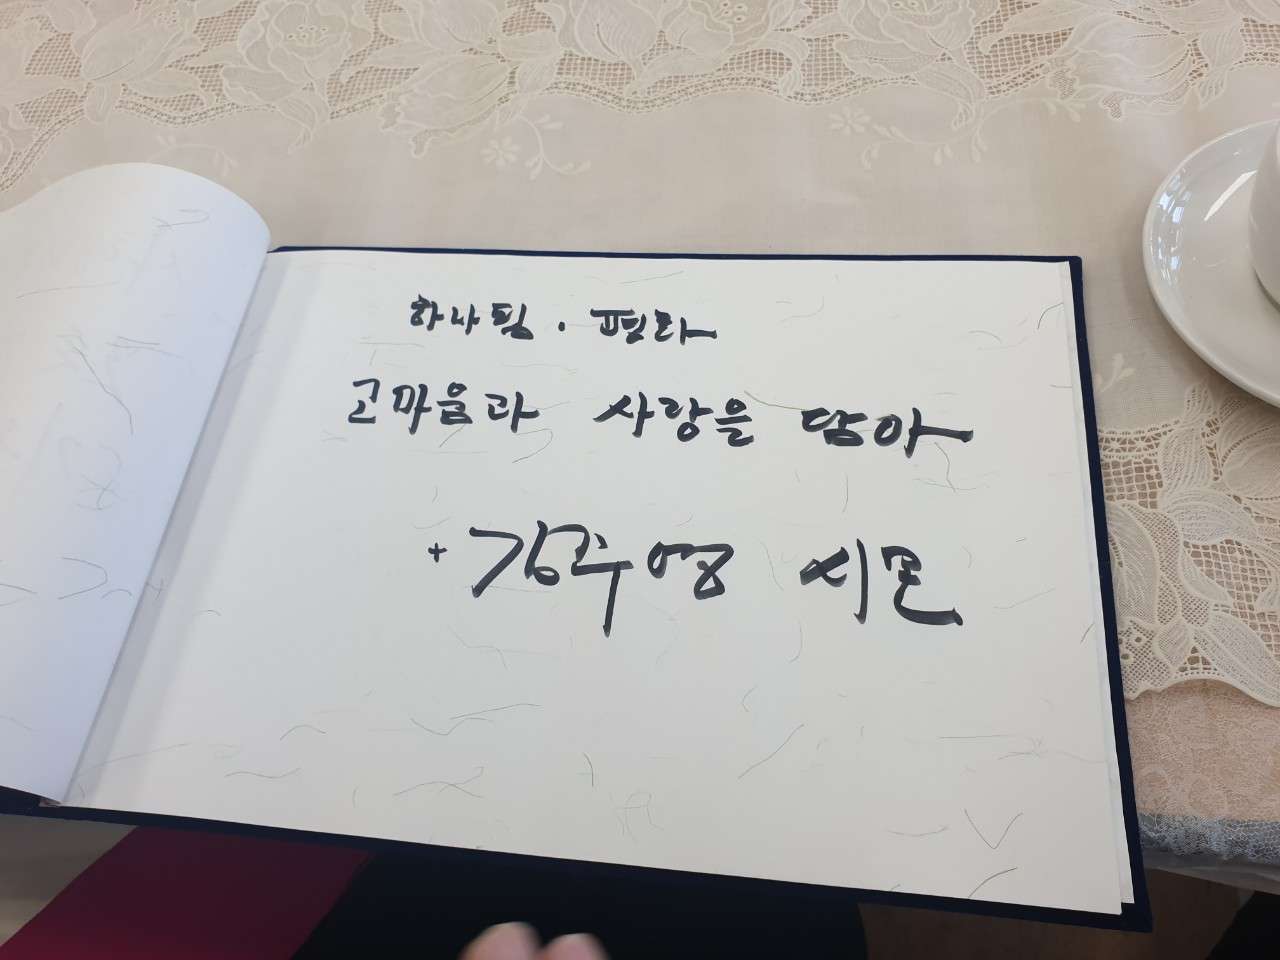 하나됨 · 평화
고마움과 사랑을 담아
+ 김주영 시몬